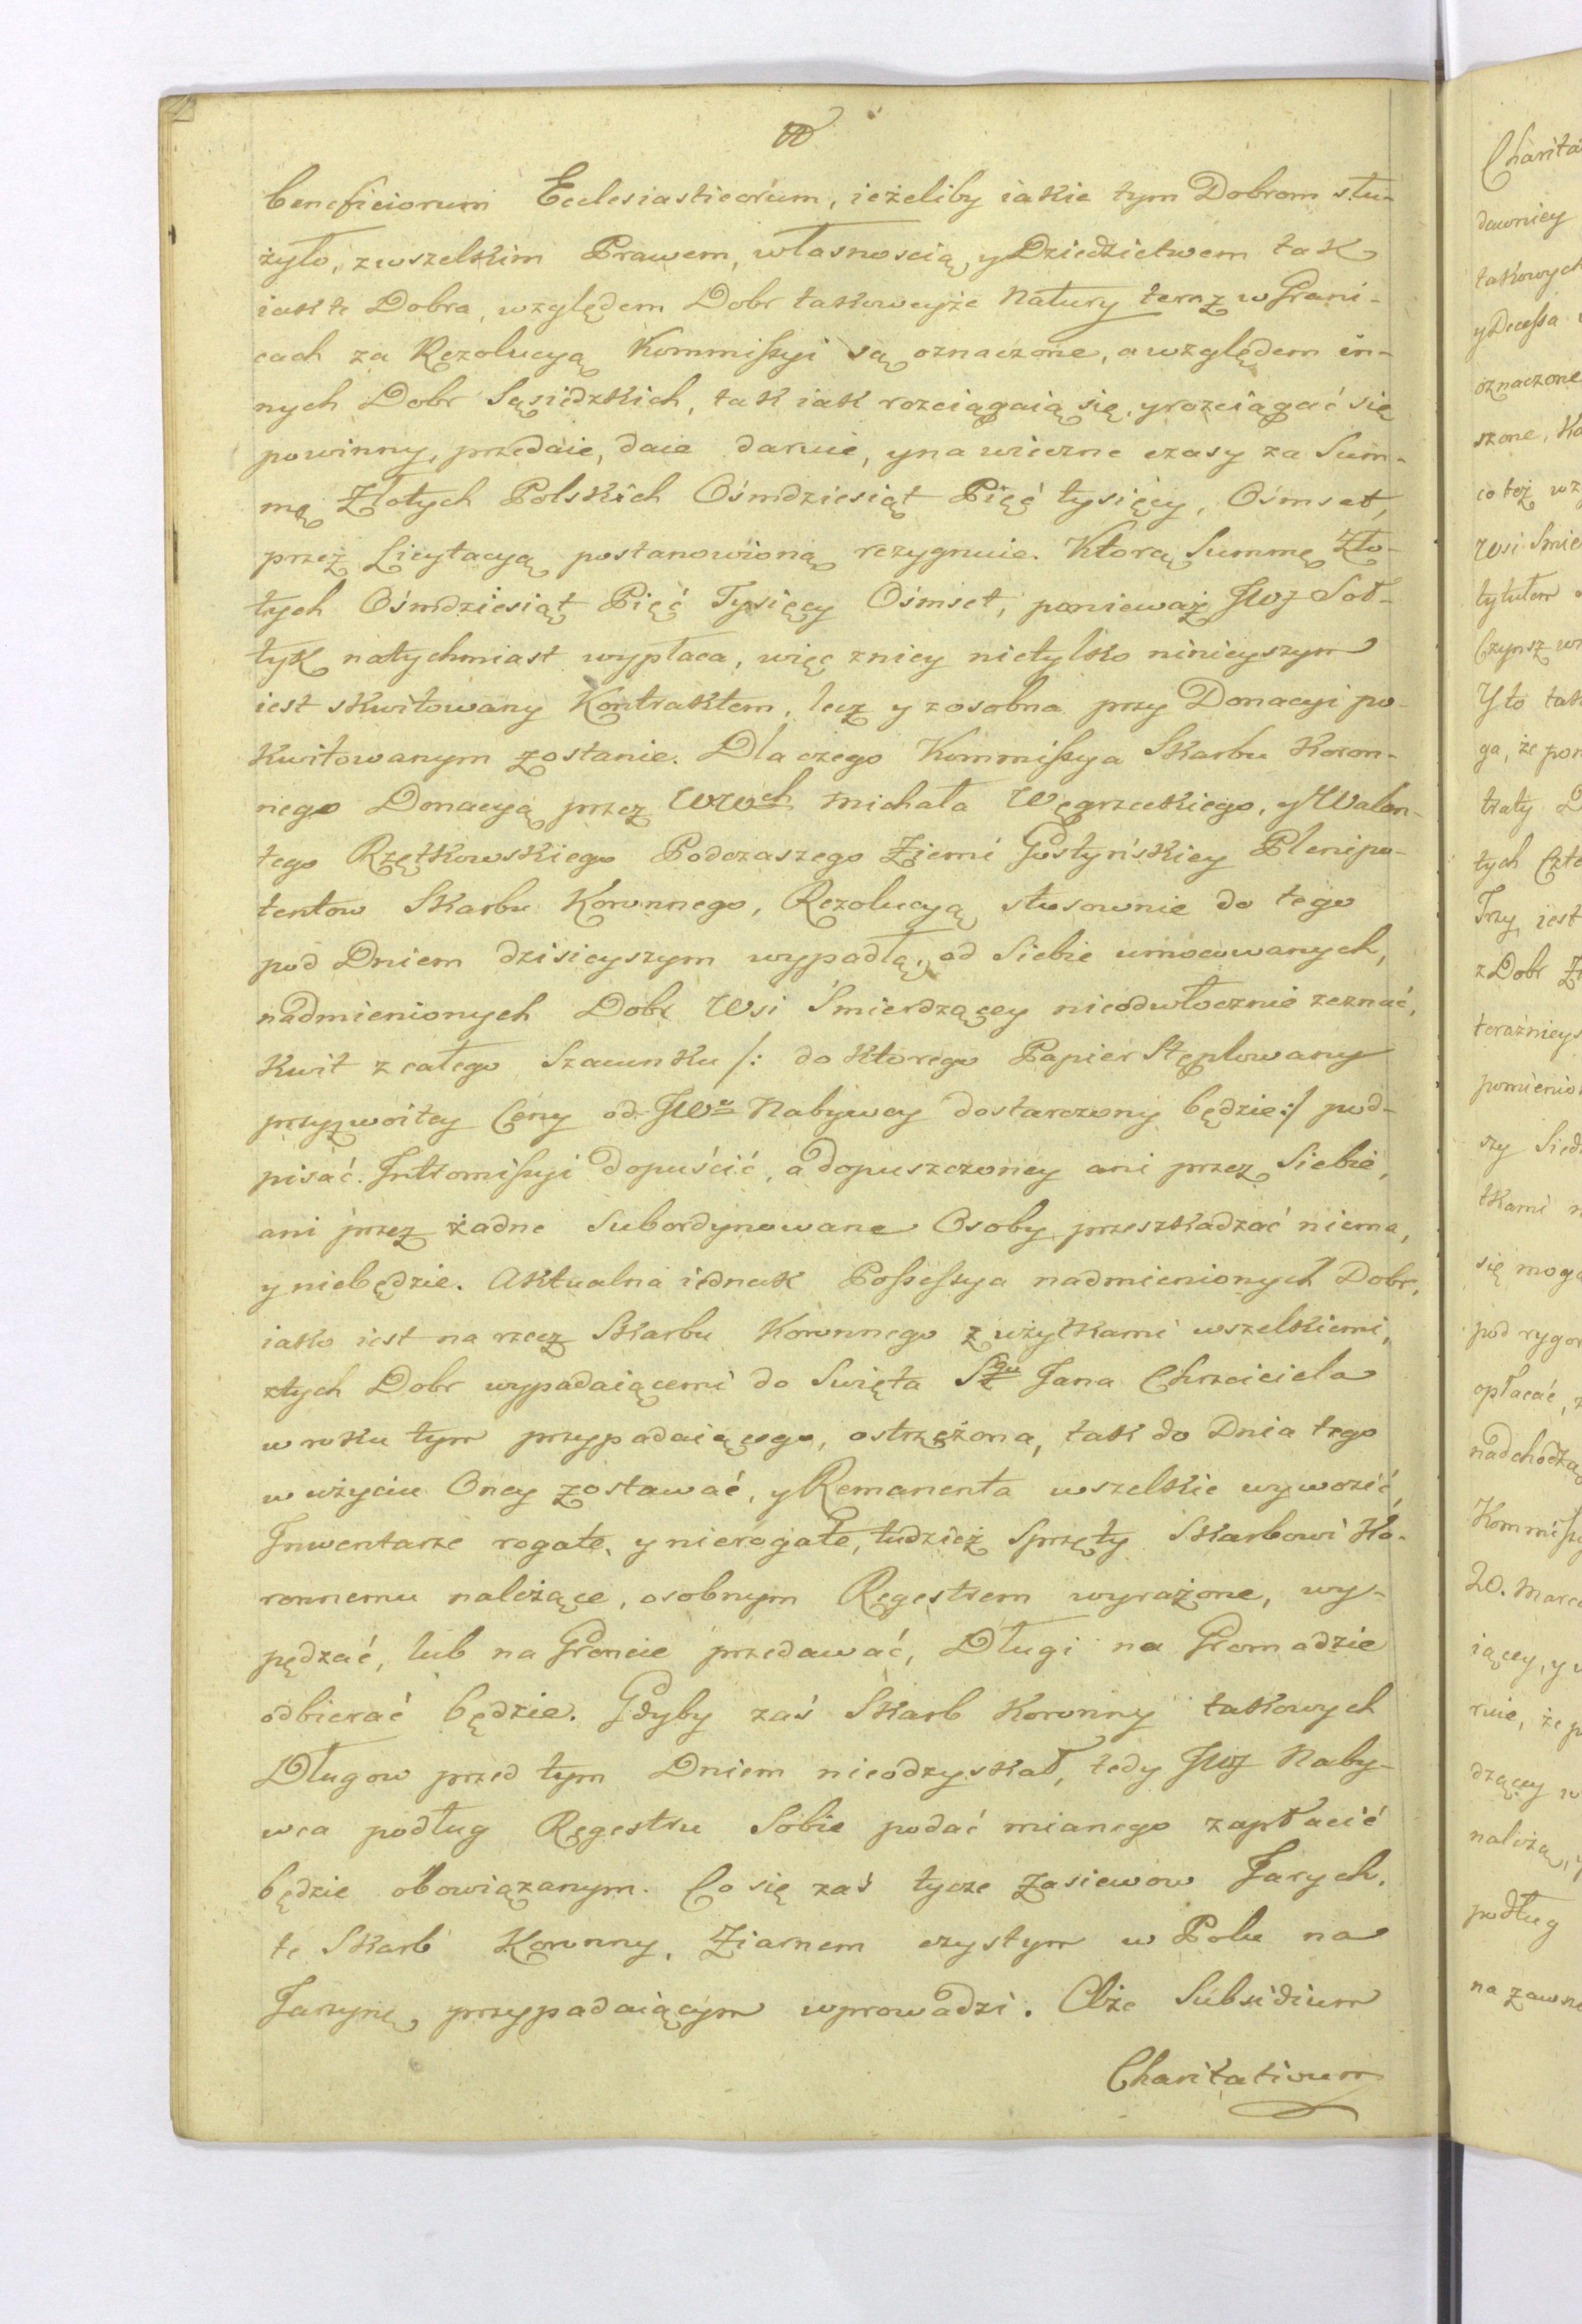 beneficiorum Ecclesiasticorum, ieżeliby iakie tym Dobrom słu-
żyło, z wszelkim Prawem, własnoscią, y Dziedzictwem tak
iak te Dobra, względem Dobr takoweyże Natury teraz w Grani-
cach za Rezolucyą Kommissyi są oznaczone, a względem in-
nych Dobr Sąsiedzkich, tak iak rozciągaią się, y rozciągać się
powinny, przedaie, daie daruie, y na wieczne czasy za Sum-
mę Złotych Polskich Ośmdziesiąt Pięć tysięcy, Ośmset,
przez Licytacyą postanowioną rezygnuie. Ktorą Summę Zło-
tych Ośmdziesiąt Pięć Tysięcy Ośmset, ponieważ JWJ Soł-
tyk natychmiast wypłaca, więc z niey nietylko ninieyszym
iest skwitowany Kontraktem, lecz y z osobna przy Donacyi po-
kwitowanym zostanie. Dla czego Kommissya Skarbu Koron-
nego Donacyą przez WWch Michała Węgrzeckiego, y Walen-
tego Rzętkowskiego Podczaszego Ziemi Gostyńskiey Plenipo-
tentow Skarbu Koronnego, Rezolucyą stosownie do tego
pod Dniem dzisieyszym wypadłą, od Siebie umocowanych,
nadmienionych Dobr Wsi Smierdzącey nieodwłocznie zeznać,
Kwit z całego Szacunku /: do ktorego Papier Stęplowany
przyzwoitey Ceny od JWo Nabywcy dostarczony będzie:/ pod-
pisać. Intromissyi dopuścić, a dopuszczoney ani przez Siebie,
ani przez żadne Subordynowane Osoby przeszkadzać niema,
y niebędzie. Aktualna iednak Possessya nadmienionych Dobr,
iako iest na rzecz Skarbu Koronnego z użytkami wszelkiemi,
z tych Dobr wypadaiącemi do Swięta Sgo Jana Chrzciciela
w roku tym przypadaiącego, ostrzeżona, tak do Dnia tego
w użyciu Oney zostawać, y Remanenta wszelkie wywozić,
Inwentarze rogate, y nierogate, tudzież Sprzęty Skarbowi Ko-
ronnemu należące, osobnym Regestrem wyrażone, wy-
pędzać, lub na Groncie przedawać, Długi na Gromadzie
odbierać będzie. Gdyby zaś Skarb Koronny takowych
Długow przed tym Dniem nieodzyskał, tedy JWJ Naby-
wca podług Regestru Sobie podać mianego zapłacić
będzie obowiązanym. Co się zaś tycze Zasiewow Jarych,
te Skarb Koronny, Ziarnem czystym w Polu na
Jarzynę przypadaiącym wprowadzi. Abże Subsidium
Charitativum